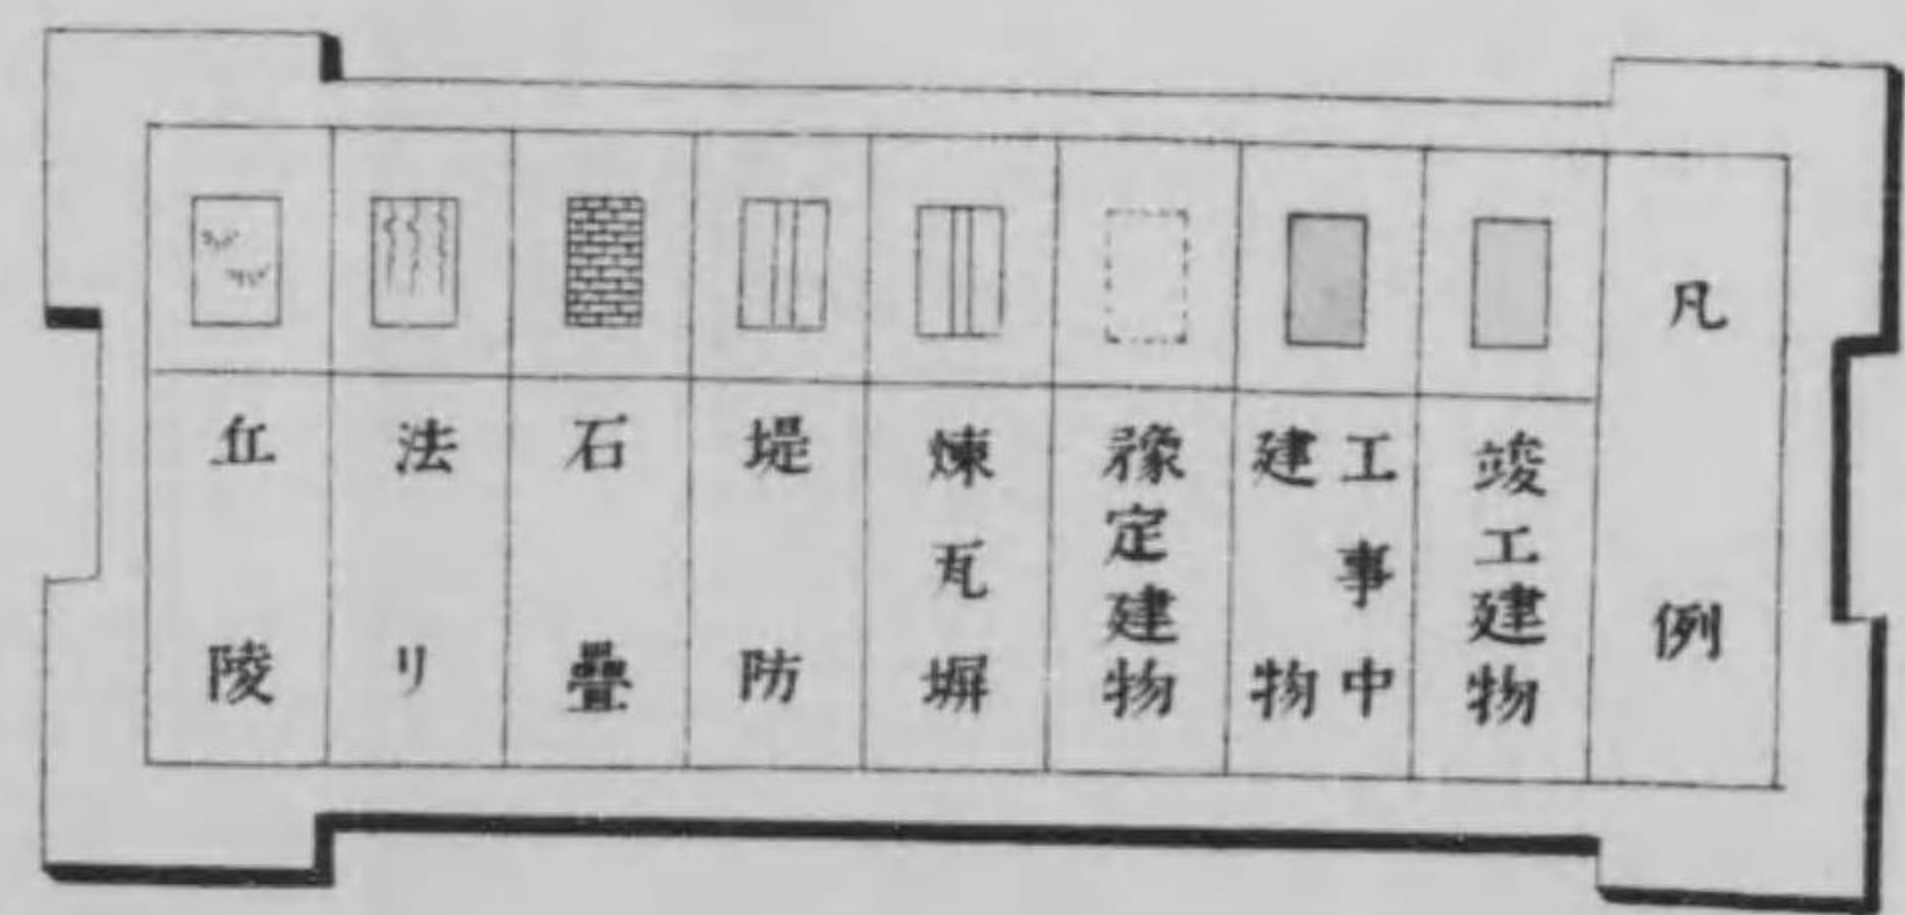 凡例
竣工建物
工事中
建物
豫定建物
煉瓦塀
堤防
石疊
法リ
丘陵